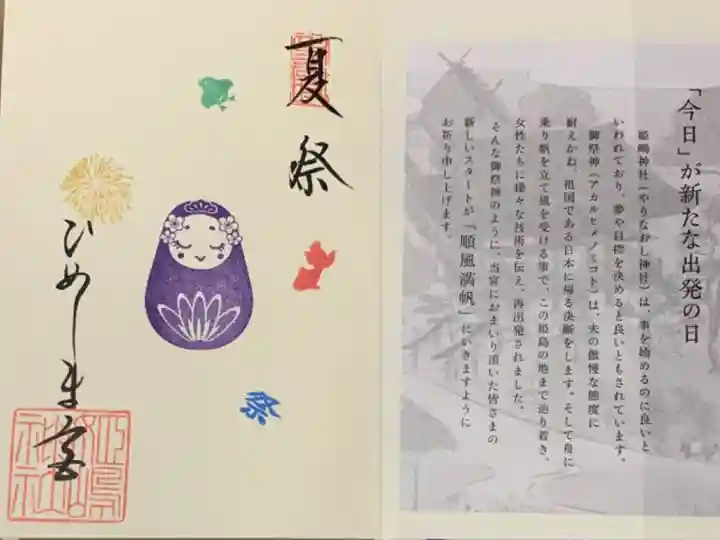 「今日」が新たな出発の日
姫嶋神社(やりなおし神社)は、事を始めるのに良いと
いわれており、夢や目標を決めると良いともされています。
御祭神(アカルヒメノミコト)は、夫の傲慢な態度に
耐えかね、祖国である日本に帰る決断をします。そして舟に
乗り帆を立て風を受ける事で、この姫島の地まで辿り着き、
女性たちに様々な技術を伝え、再出発されました。
そんな御祭神のように、当宮におまいり頂いた皆さまの
新しいスタートが「順風満帆」にいきますように
お祈り申し上げます。
夏祭
祭
ひめしま宮
姫嶋神社